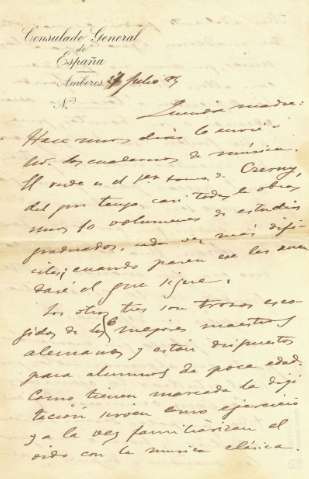 Consulado General
de
España
Amberes 27 Julio 95
N.º
Querida madre:
Hace unos días le envié
los cuadernos de música.
El verde es el 1er tomo de Czerny,
del que tengo casi todas las obras
unos 10 volumenes de estudios
graduados, cada vez más difi
ciles; cuando pasen ese les man
daré el que sigue.
Los otros tres son trozos esco
gidos de los mejores maestros
alemanes y están dispuestos
para alumnos de poca edad.
Como tienen marcada la digi
tación sirven como ejercicio
y a la vez familiarizan el
oido con la musica clásica.